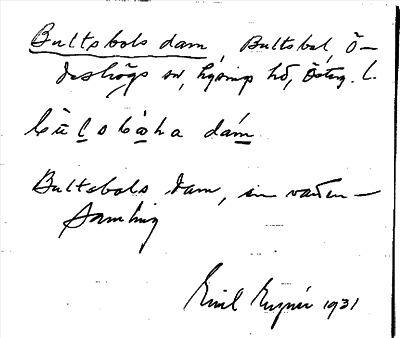 Bultsbols dam, Bultsbol, Ö-
deshögs sn, Lysings hd, Östg. l.
dam
Bultsbols dam, en vatten-
samling
Emil 1931